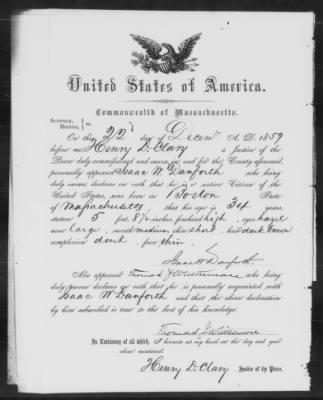 United States of America.
Commonwealth of Massachusetts.
SUFFOLK,
BOSTON, } ss.
On this 22d day of Decem A. D. 1859
before me, Henry D. Clary a Justice of the
Peace duly commissioned and sworn, in and for the County aforesaid,
personally appeared Isaac W. Danforth who being
duly sworn, declares on oath that he is a native Citizen of the
United States, was born in Boston State
of Massachusetts that his age is 34 years,
stature 5 feet 8½ inches, forehead high, eyes hazel
nose large, mouth medium, chin short, hair dark brown
complexion dark, face thin.
Isaac W Danforth
Also appeared Thomas J Whittemore who being
duly sworn declares on oath that he is personally acquainted with
Isaac W Danforth and that the above declaration
by him subscribed is true to the best of his knowledge.
Thomas J Whittemore
In Testimony of all which, I hereunto set my hand on the day and year
above mentioned.
Henry D. Clary Justice of the Peace.